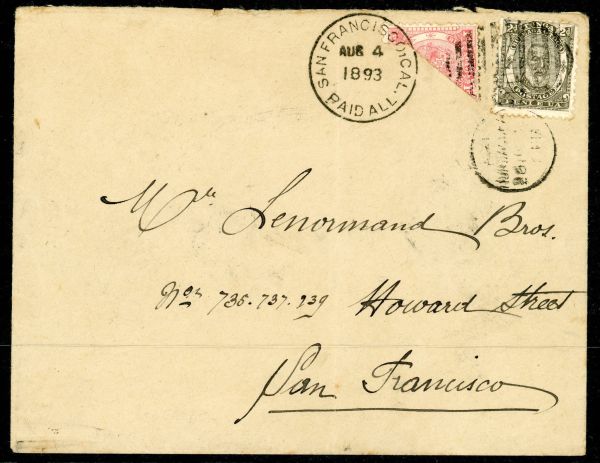 SAN FRANCISCO, CAL.
AUG 4
1893
PAID ALL.
Mr. Lenormand Bros.
Nos. 735.737.739 Howard Street
San Francisco